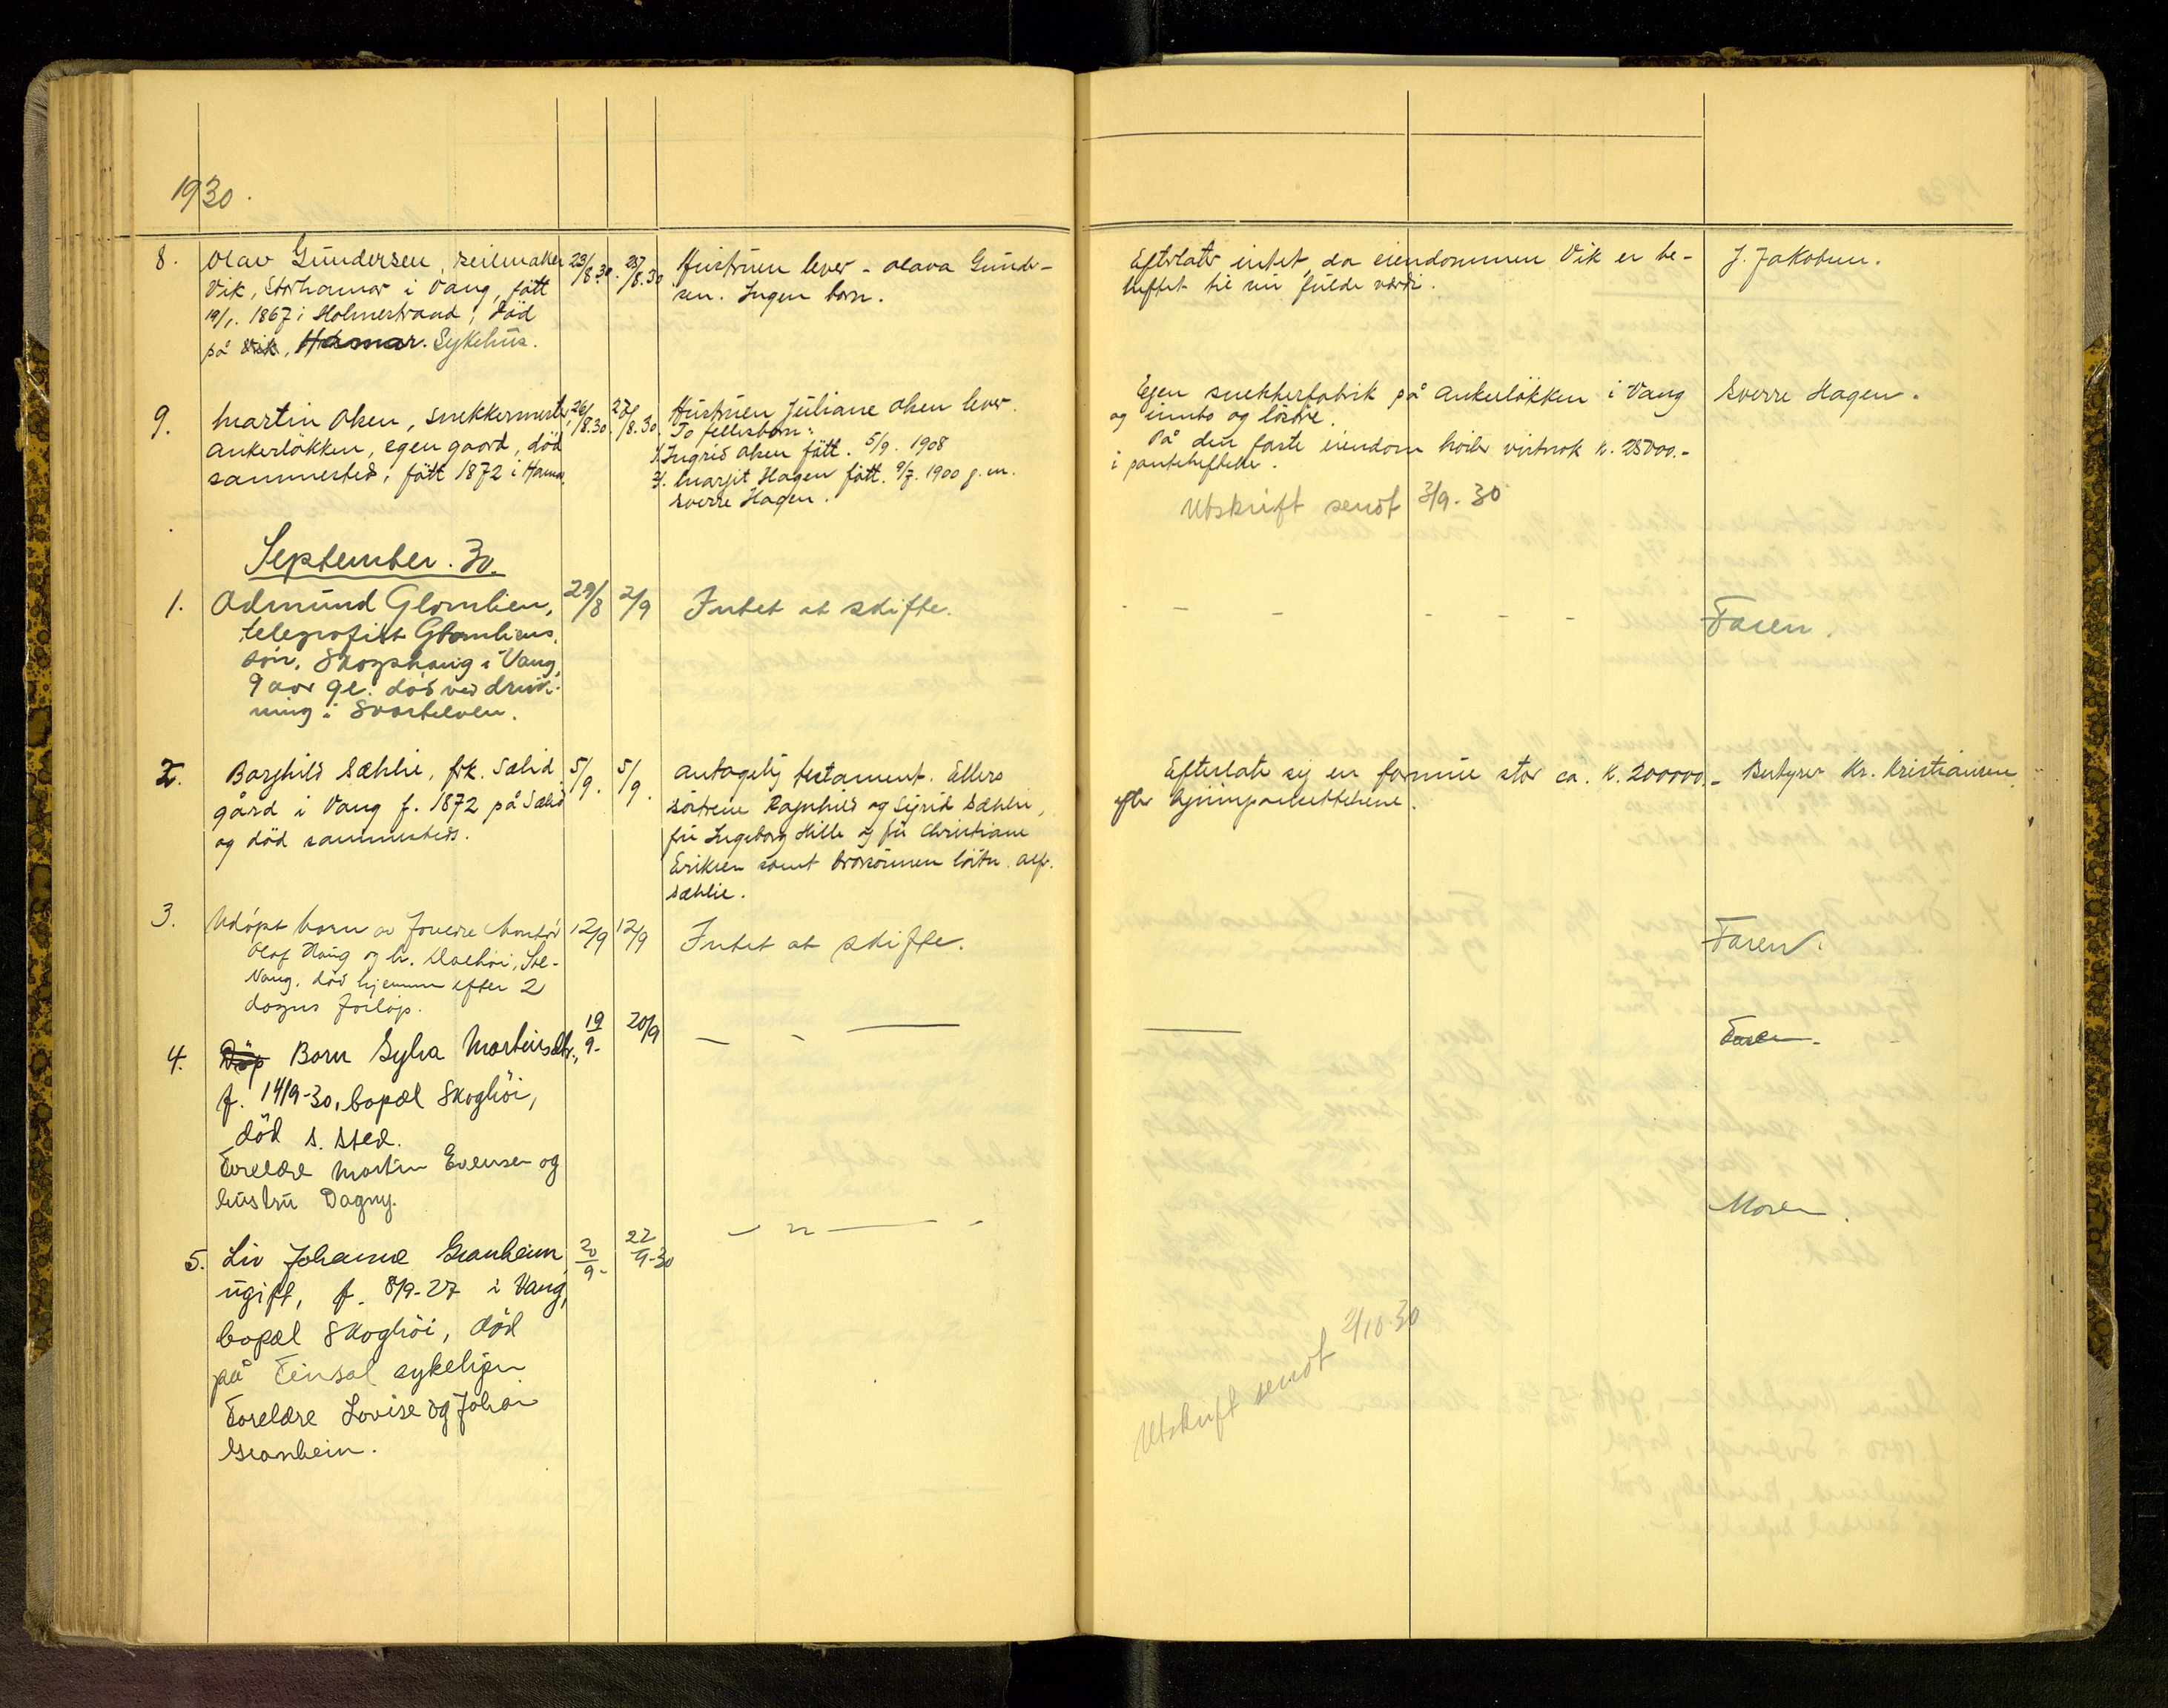 1930.
8. Olav Gundersen, seilmaker 23/8.30. 27/8.30 Hustruen lever - Olava Gunder- Efterlater intet, da eiendommen Vik er be- J. Jakobsen.
Vik, Storhamar i Vang, født sen. Ingen barn. heftet til sin fulde værdi.
19/1. 1867 i Holmestrand, död
på Vik, Hamar. Sykehus.
9. Martin Olsen, snekkermester, 26/8.30. 27/8.30. Hustruen Juliane Olsen lever. Egen snekkerfabrik på Ankerlökken i Vang Sverre Hagen.
Ankerlökken, egen gaard, död To fellesbarn: og innbo og lösöre.
sammested, fött 1872 i Hamar. 1. Ingrid Olsen fött. 5/9. 1908 På den faste eiendom hviler vistnok kr. 25000.-
2. Margit Hagen fött. 9/7. 1900 g.m. i panteheftelser.
Sverre Hagen.
Utskrift sendt 3/9. 30
September. 30.
1. Odmund Glomlien, 29/8 2/9 Intet at skifte. - - - - - - Faren.
telegrafist Glomliens
sön, Skogshaug i Vang,
9 aar gl. död ved druk-
ning i Svartelven.
2. Borghild Sæhlie, frk. Sælid 5/9. 5/9. Antagelig testament. Ellers Efterlater sig en formue stor ca. kr. 200000.- Bestyrer Kr. Kristiansen
gård i Vang f. 1872 på Sælid söstrene Ragnhild og Sigrid Sæhlie, efter
og död sammesteds. fru Ingeborg Hille og fru Christiane
Eriksen samt brorsönnen löitn. Alf.
Sæhlie.
3. Udöpt barn av Olaf Haug og h. 12/9 12/9 Intet at skifte. Faren.
Vang. död hjemme efter 2
dögns forlöp.
4. Döp Barn Sylva Martinsdtr., 19/9- 20/9 - - — — Faren.
f. 14/9-30, bopæl Skoghöi,
död s. sted.
Foreldre Martin Evensen og
hustru Dagny.
5. Liv Johanne Granheim 20/9- 22/9-30 - " — - Moren.
ugift, f. 8/9-27 i Vang,
bopæl Skoghöi, död
på Finsal sykehjem
Foreldre Lovise og Johan
Granheim.
Utskrift sendt 2/10 30